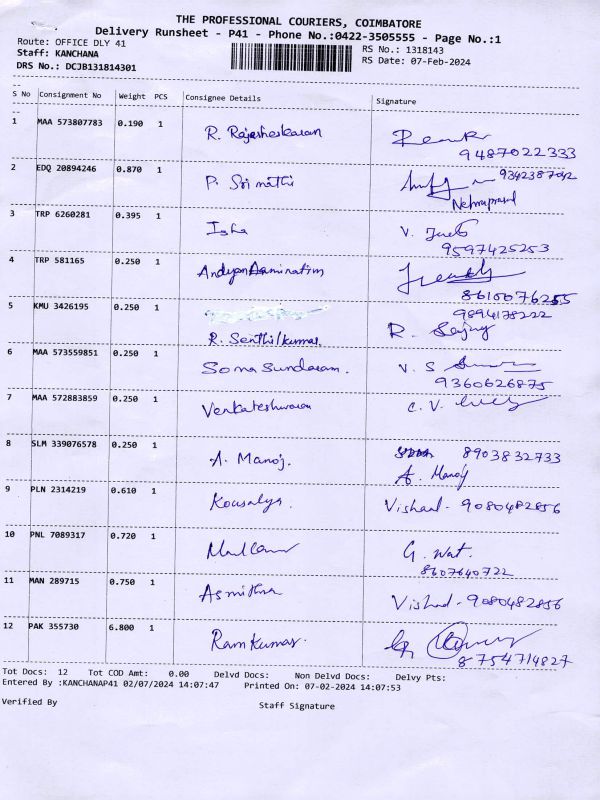 THE PROFESSIONAL COURIERS, COIMBATORE
Delivery Runsheet - P41 - Phone No.:0422-3505555 - Page No.:1
Route: OFFICE DLY 41 RS No.: 1318143
Staff: KANCHANA RS Date: 07-Feb-2024
DRS No.: DCJB131814301
S No Consignment No Weight PCS Consignee Details Signature
1 MAA 573807783 0.190 1 R. Rajashekaran
9487022333
2 EDQ 20894246 0.870 1 P. Srimathi 9342387042
Nehruprasad
3 TRP 6260281 0.395 1 Isha V.
9597425253
4 TRP 581165 0.250 1
8610076255
5 KMU 3426195 0.250 1 9894178222
R. Senthilkumar. R.
6 MAA 573559851 0.250 1 Somasundaram. V. S
9360626875
7 MAA 572883859 0.250 1 Venkateshwaran C. V.
8 SLM 339076578 0.250 1 A. Manoj. 8903832733
A. Manoj
9 PLN 2314219 0.610 1 Kousalya. Vishaal- 9080482856
10 PNL 7089317 0.720 1 G. Wat.
8607640722
11 MAN 289715 0.750 1 Asmithra Vishal- 9080482856
12 PAK 355730 6.800 1 Ramkumar.
8754714827
Tot Docs: 12 Tot COD Amt: 0.00 Delvd Docs: Non Delvd Docs: Delvy Pts:
Entered By :KANCHANAP41 02/07/2024 14:07:47 Printed On: 07-02-2024 14:07:53
Verified By Staff Signature